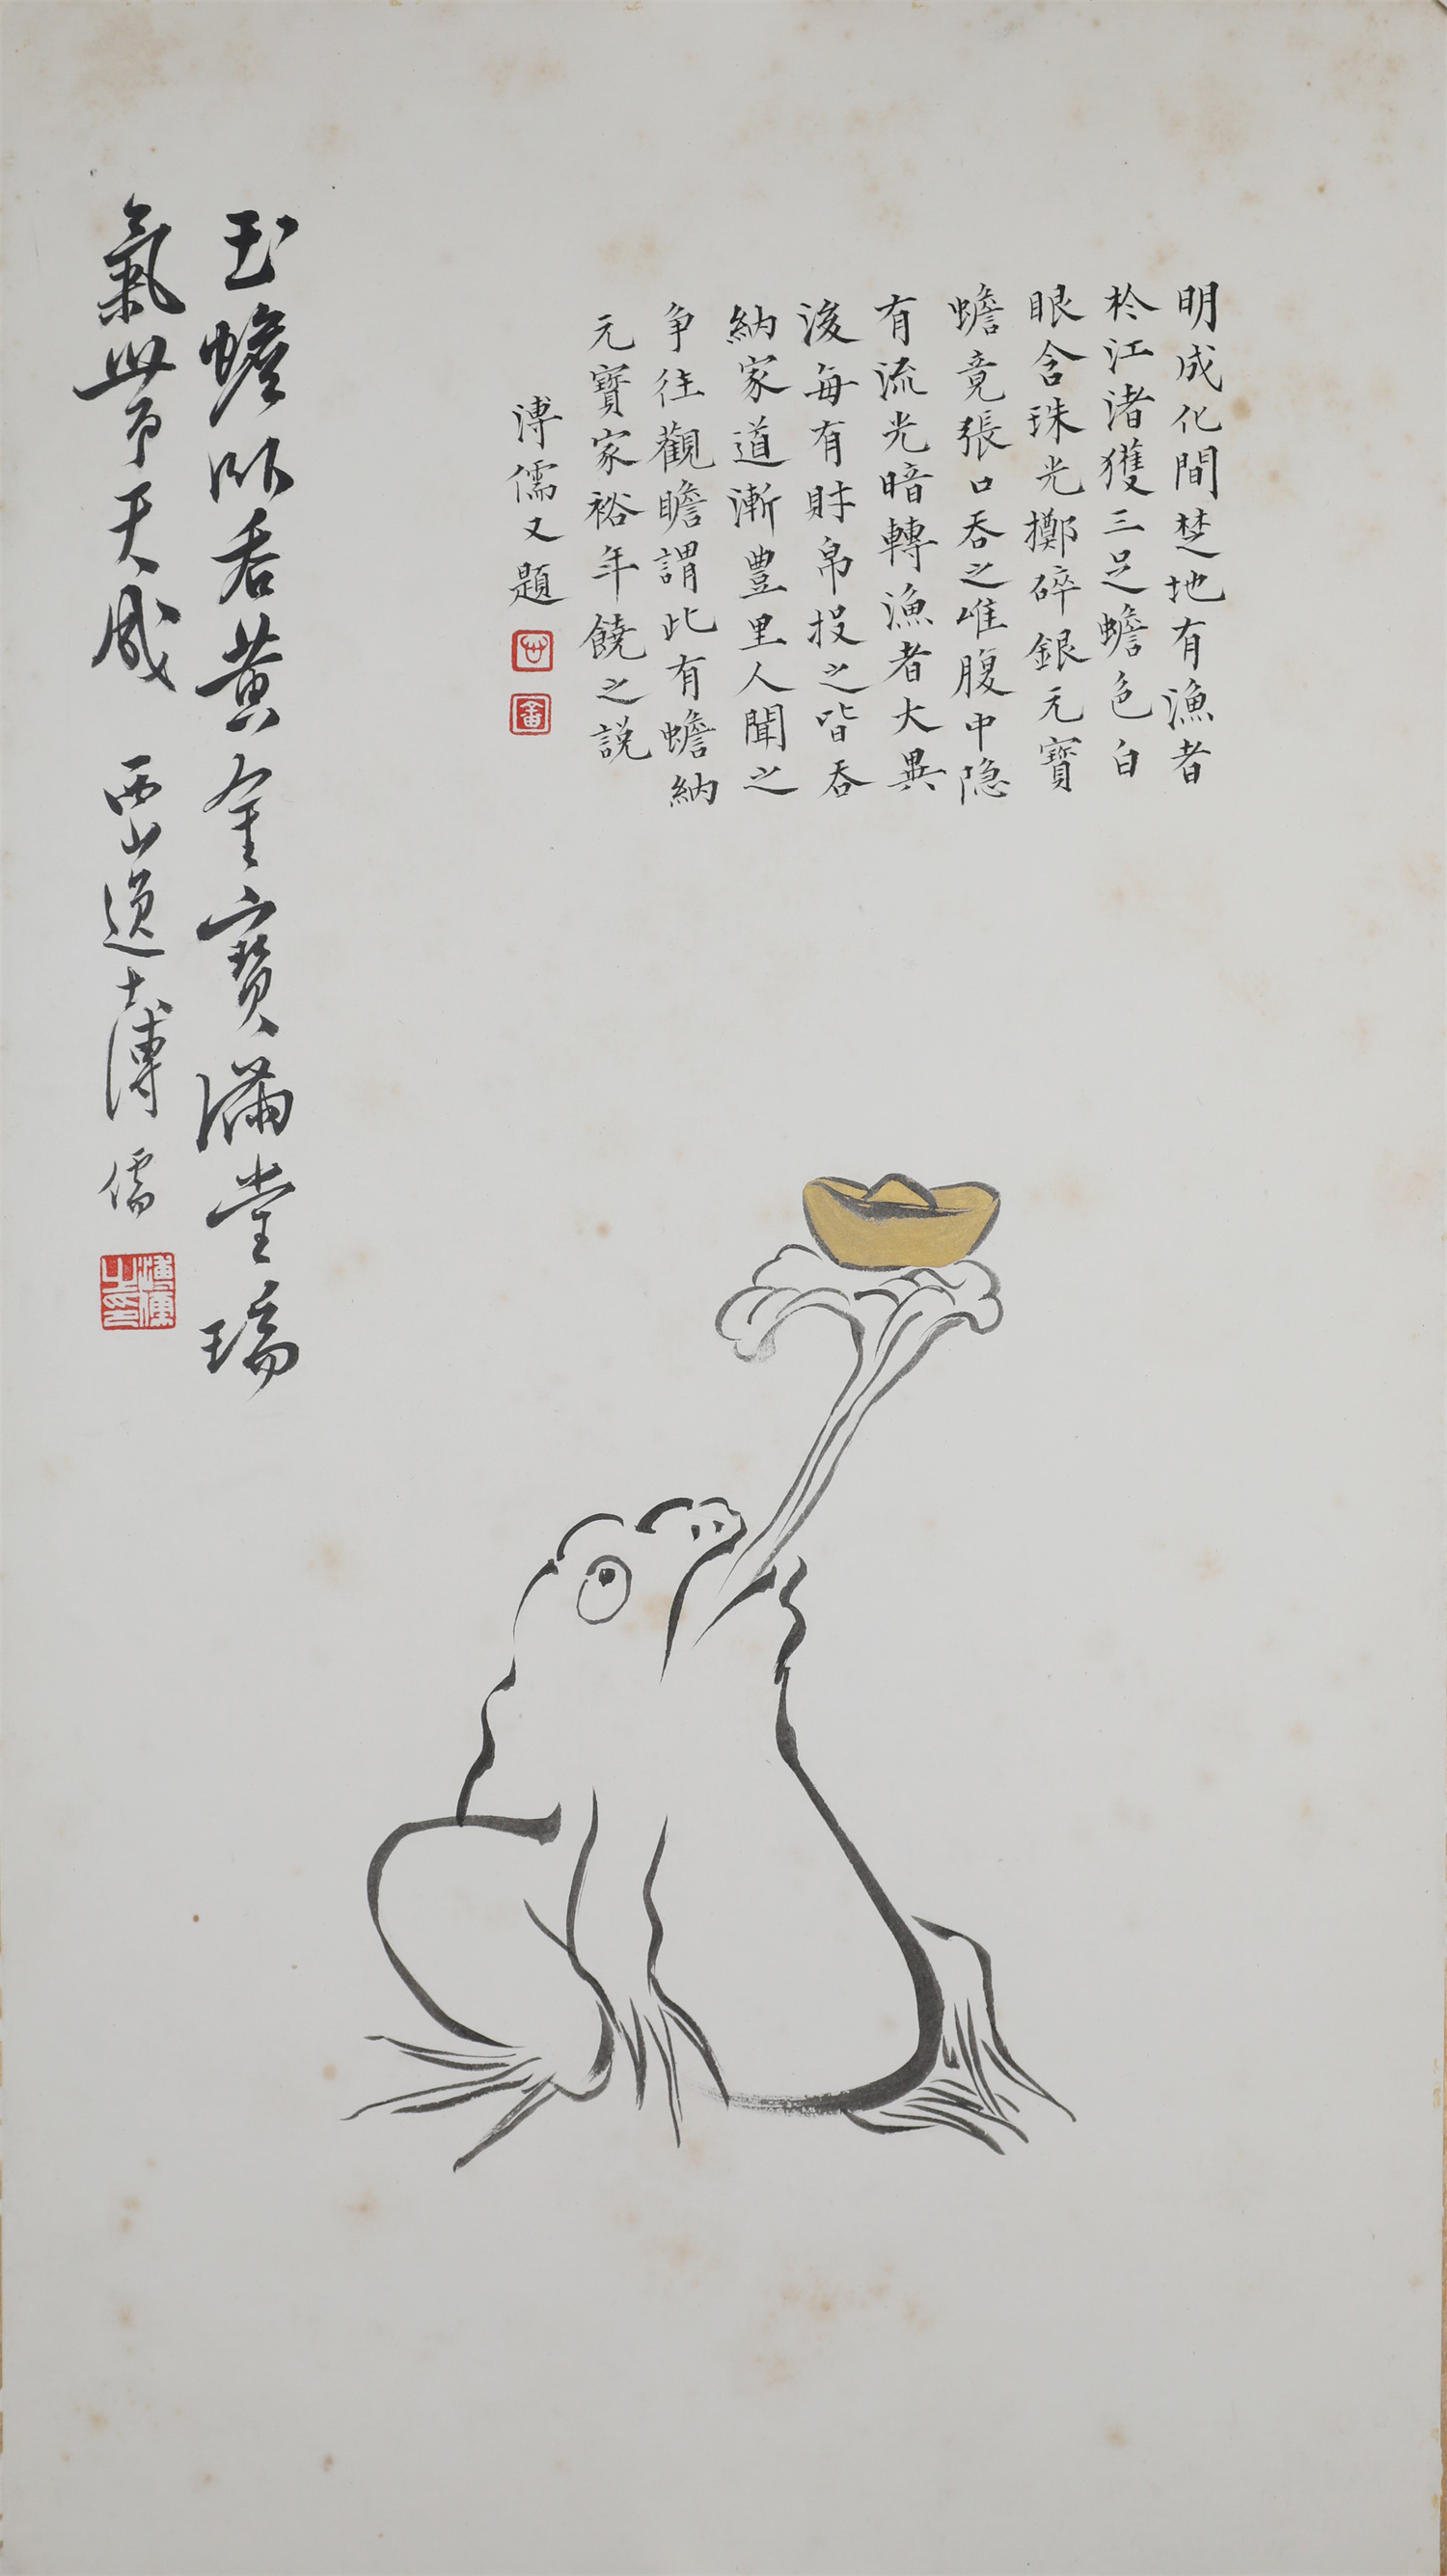 明成化間楚地有漁者
於江渚獲三足蟾色白
眼含珠光擲碎銀元寶
蟾竟張口吞之唯腹中隐
有流光暗轉漁者大異
後每有財帛投之皆吞
納家道漸豐里人聞之
争往觀瞻謂此有蟾納
元寶家裕年饒之説
溥儒又題
玉蟾吞黃金寶滿堂瑞
氣天成
西山逸士溥儒
溥儒之印